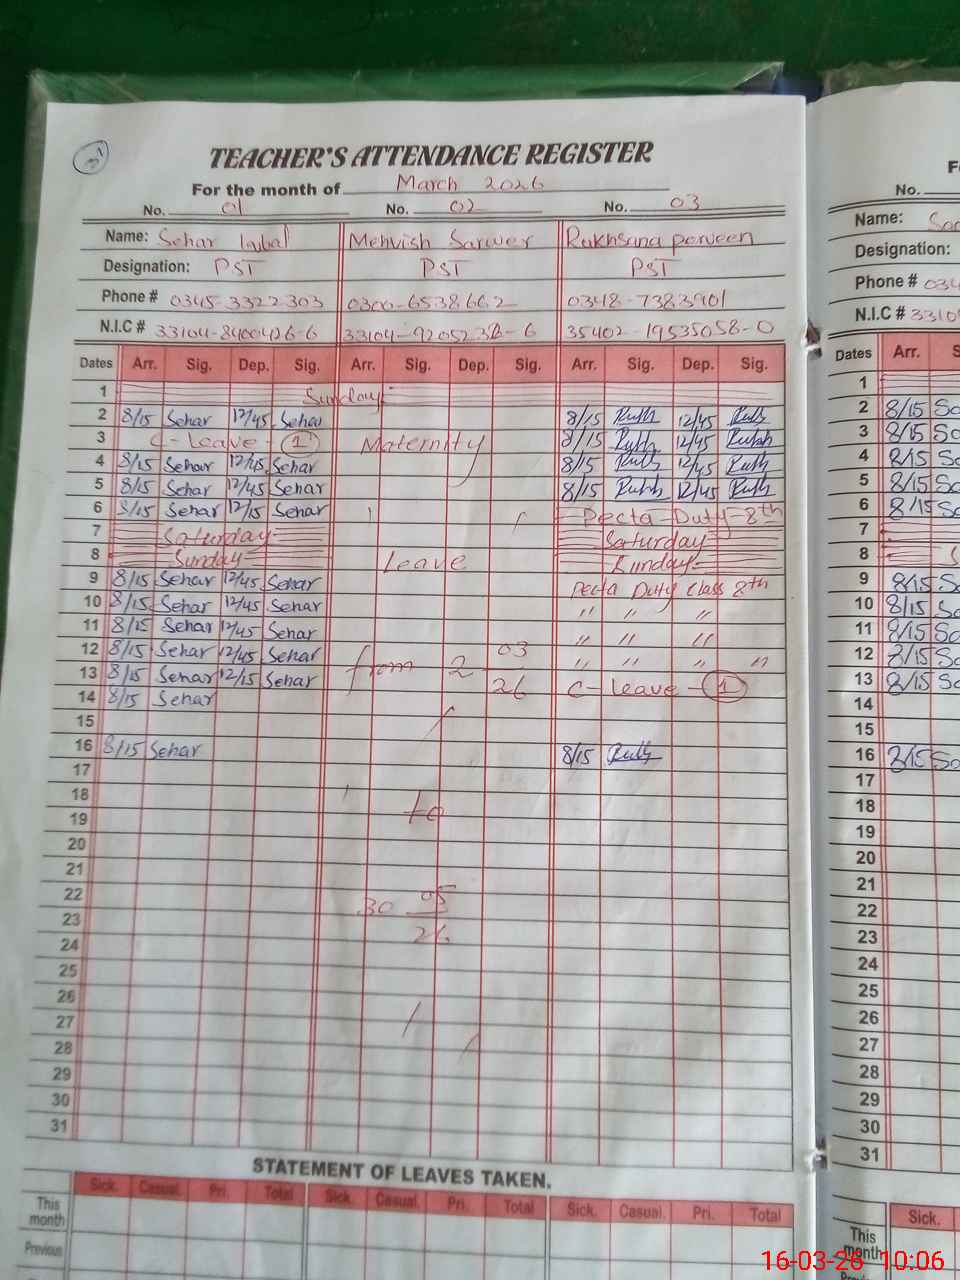 TEACHER'S ATTENDANCE REGISTER
For the month of March 2026
No. 01 No. 02 No. 03
Name: Sehar Iqbal Mehvish Sarwer Rukhsana parveen
Designation: PST PST PST
Phone # 0345-3322303 0300-6538662 0348-7383901
N.I.C # 33104-8400426-6 33104-9205238-6 35402-19535058-0
Dates Arr. Sig. Dep. Sig. Arr. Sig. Dep. Sig. Arr. Sig. Dep. Sig.
1 Sunday
2 8/15 Sehar 12/45 Sehar 8/15 Rukh 12/45 Rukh
3 C-Leave-1 Maternity 8/15 Rukh 12/45 Rukh
4 8/15 Sehar 12/45 Sehar 8/15 Rukh 12/45 Rukh
5 8/15 Sehar 12/45 Sehar 8/15 Rukh 12/45 Rukh
6 8/15 Sehar 12/15 Sehar Pecta-Duty-8th
7 Saturday Saturday
8 Sunday Leave Sunday
9 8/15 Sehar 12/45 Sehar Pecta Duty Class 8th
10 8/15 Sehar 12/45 Sehar " " "
11 8/15 Sehar 12/45 Sehar " " "
12 8/15 Sehar 12/45 Sehar from 2 03 " " " "
13 8/15 Sehar 12/15 Sehar 26 C-Leave-1
14 8/15 Sehar
15
16 8/15 Sehar 8/15 Rukh
17
18
19 to
20
21
22 30 05
23 26
24
25
26
27
28
29
30
31
STATEMENT OF LEAVES TAKEN.
Sick. Casual. Pri. Total Sick. Casual. Pri. Total Sick. Casual. Pri. Total
This month
Previous
No.
Name:
Designation:
Phone # 034
N.I.C # 3310
Dates Arr.
1
2 8/15
3 8/15
4 8/15
5 8/15
6 8/15
7
8
9 8/15
10 8/15
11 8/15
12 8/15
13 8/15
14
15
16 8/15
17
18
19
20
21
22
23
24
25
26
27
28
29
30
31
Sick.
This month
16-03-26 10:06